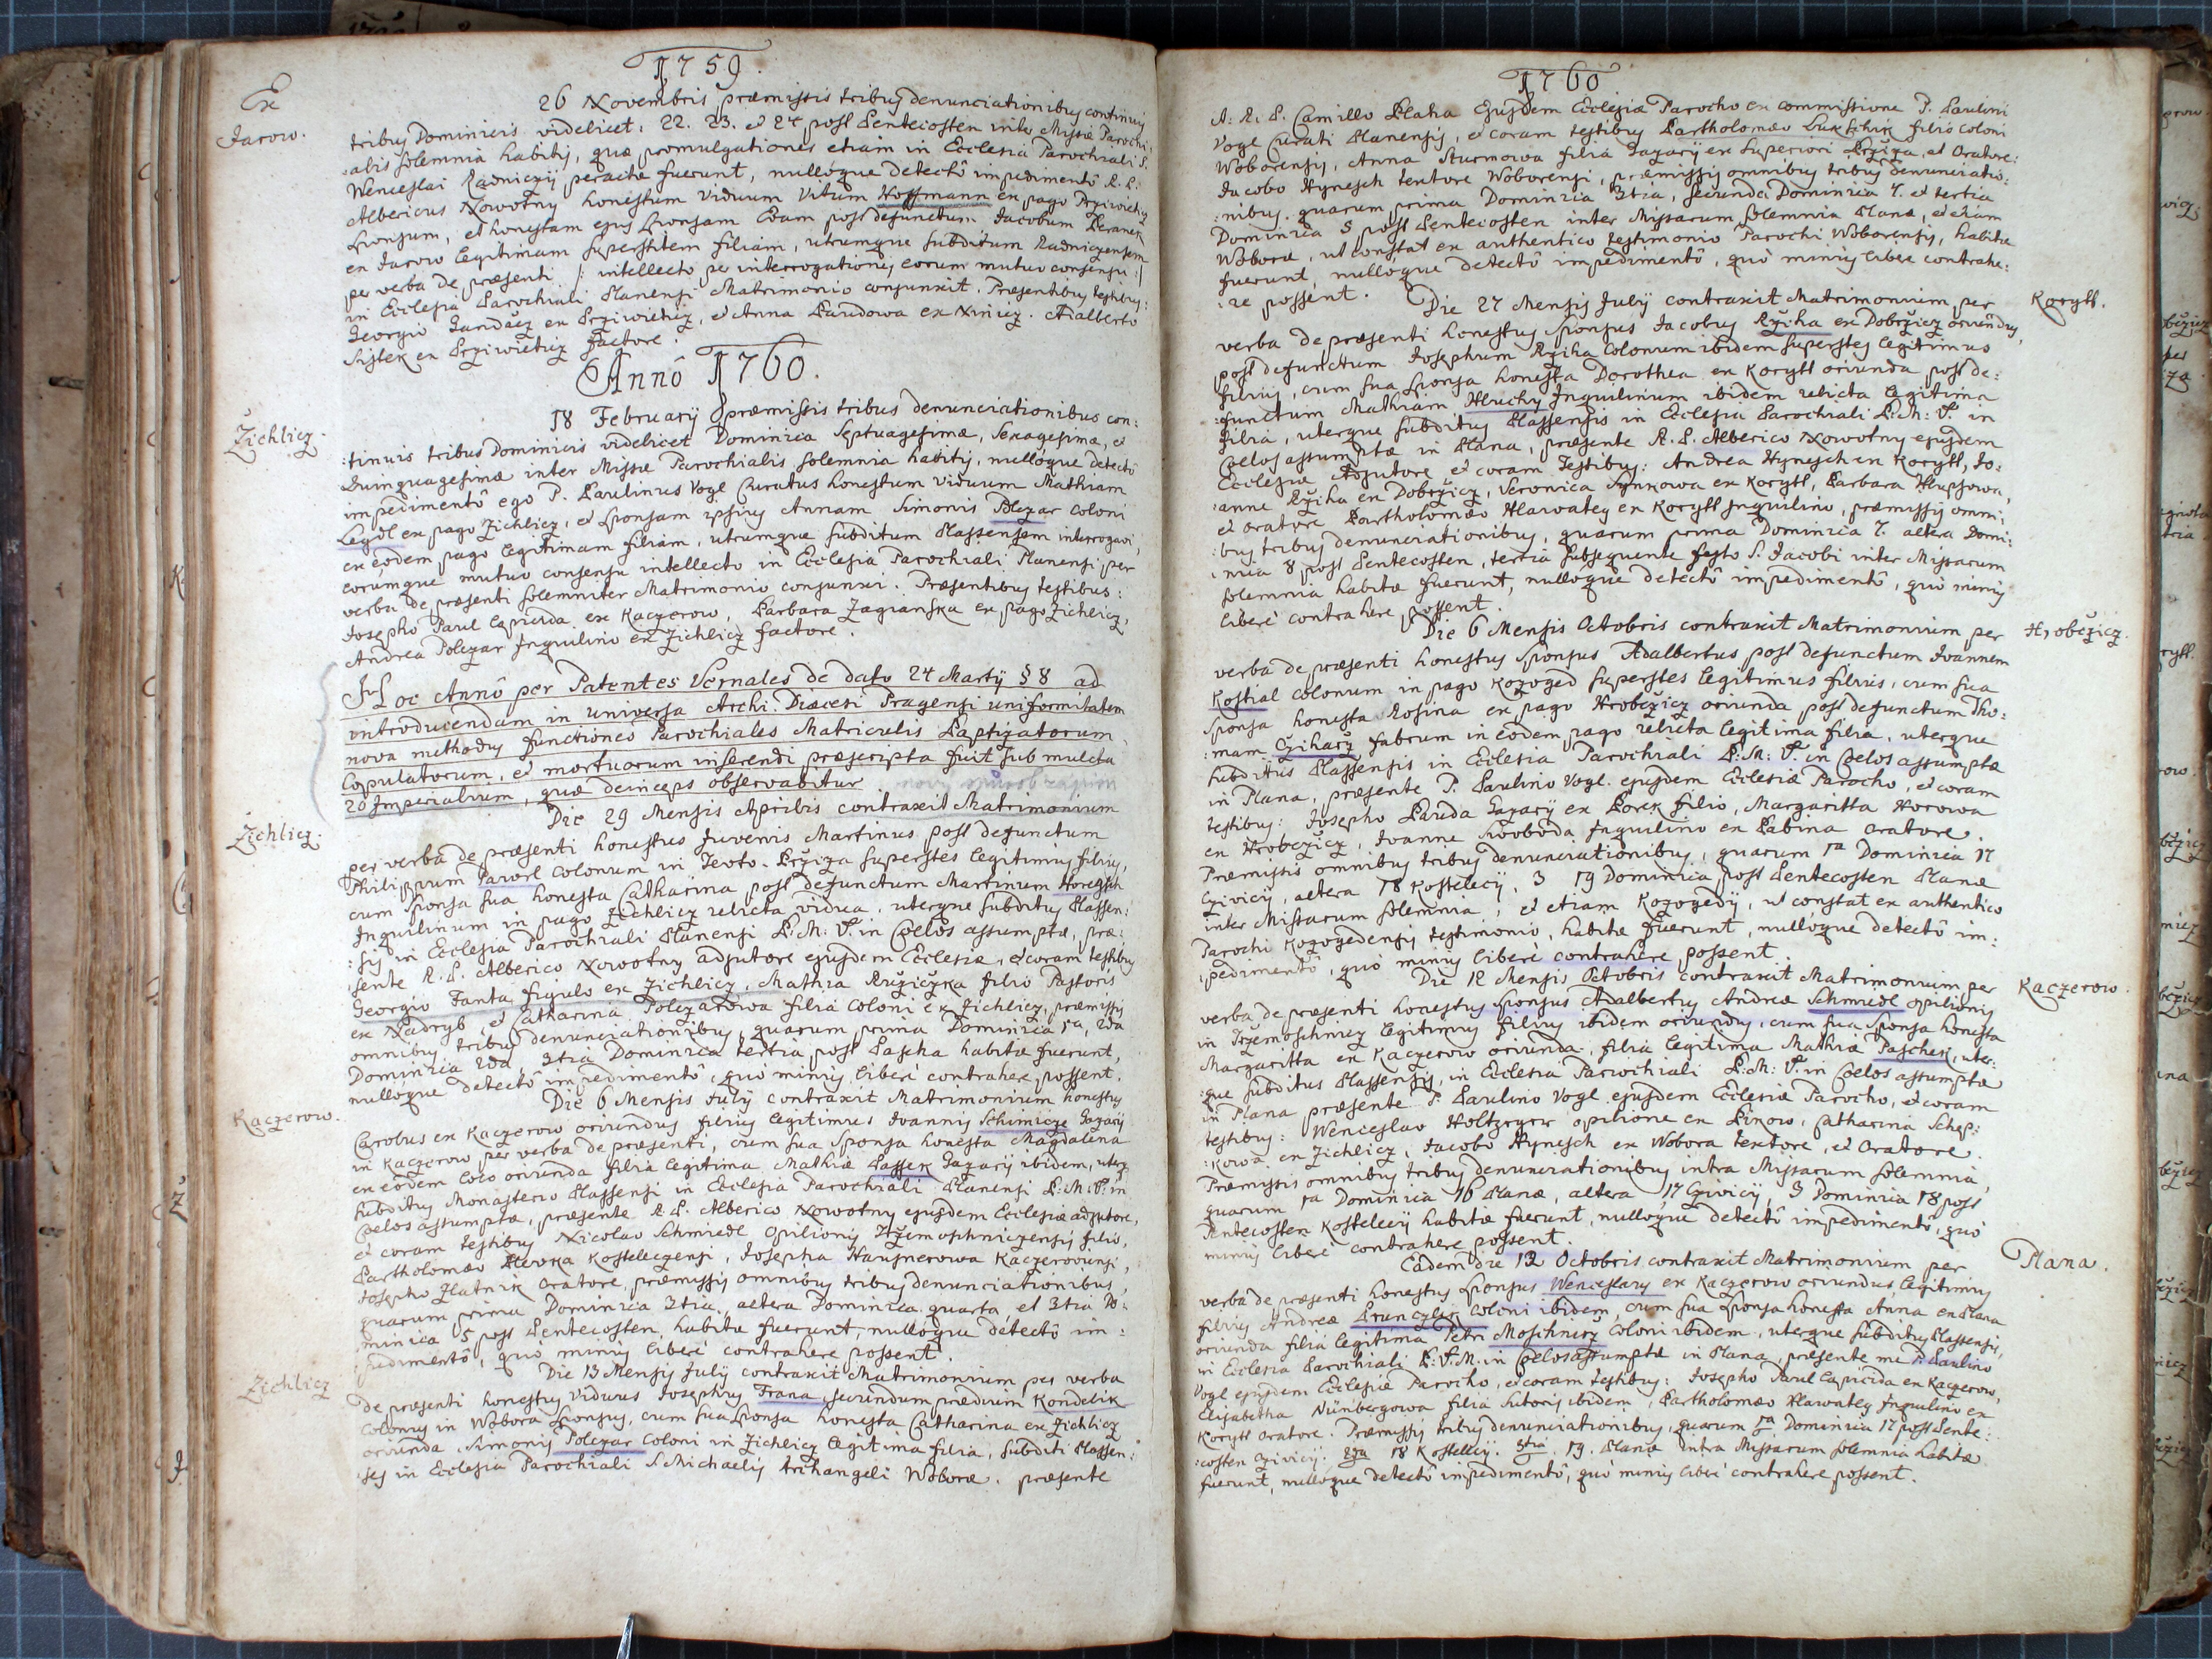 1759.
Ex
Jarow.
26 Novembris præmissis tribus denunciationibus continuis
tribus Dominicis videlicet: 22. 23. et 24 post Pentecosten inter Missæ Parochi:
:alis solemnia habitis, quæ promulgationes etiam in Ecclesia Parochiali S.
Wenceslai Radniczÿ peractæ fuerunt, nullóque detectô impedimentô R. P.
Albericus Nowotny honestum Viduum Vitum Hoffmann ex pago Przÿwieticz
Sponsum, et honestam ejus Sponsam Evam post defunctum Jacobum Beranek
ex Jarow legitimam superstitem filiam, utrumque subditum Radniczensem
per verba de præsenti /: intellecto per interrogationes eorum mutuo consensu :/
in Ecclesia Parochiali Planensi Matrimonio conjunxit. Præsentibus testibus:
Georgio Jandacz ex Przÿwieticz, et Anna Baudowa ex Niniez. Adalberto
Sistek ex Przÿwieticz factore.
Annô 1760.
Žichlicz.
18 Februarÿ præmissis tribus denunciationibus con:
:tinuis tribus Dominicis videlicet Dominica Septuagesimæ, Sexagesimæ, et
Quinquagesimæ inter Missæ Parochialis solemnia habitis, nullóque detectô
impedimentô ego P. Paulinus Vogl Curatus honestum viduum Mathiam
Legdl ex pago Zichlicz, et Sponsam ipsius Annam Simonis Polczar coloni
ex eôdem pago legitimam filiam, utrumque subditum Plassensem interrogavi,
eorumque mutuo consensu intellecto in Ecclesia Parochiali Planensi per
verba de præsenti solemniter Matrimonio conjunxi. Præsentibus testibus:
Josepho Parul lapicida ex Kaczerow, Barbara Zagranska ex pago Zichlicz,
Andrea Polczar Inquilino ex Zichlicz factore.
Hoc Annô per Patentes Vernales de dato 24 Martÿ § 8 ad
introducendam in universa Archi-Diæcesi Pragensi uniformitatem
nova methodus functiones Parochiales Matriculis Baptizatorum,
Copulatorum, et mortuorum inserendi præscripta fuit sub mulcta
20 Imperialium, quæ deinceps observabitur.
Zichlicz.
Die 29 Mensis Aprilis contraxit Matrimonium
per verba de præsenti honestus Juvenis Martinus post defunctum
Philippum Pawel colonum in Teuto-Brziza superstes legitimus filius,
cum Sponsa sua honesta Catharina post defunctum Martinum Horegsch
Inquilinum in pago Zichlicz relicta vidua, uterque subditus Plassen:
:sis in Ecclesia Parochiali Planensi B: M: V: in Cælos assumptæ, præ:
:sente R. P. Alberico Nowotny adjutore ejusdem Ecclesiæ, et coram testibus
Georgio Fanta figulo ex Zichlicz, Mathia Ružiczka filio Pastoris
ex Nadryb, et Catharina Polczarowa filia coloni ex Zichlicz, præmissis
omnibus tribus denunciationibus, quarum prima Dominica 1ma, 2da
Dominica 2da, 3tia Dominica tertia post Pascha habitæ fuerunt,
nullóque detectô impedimentô, quô minus liberè contrahere possent.
Kaczerow.
Die 6 Mensis Julÿ contraxit Matrimonium honestus
Carolus ex Kaczerow oriundus filius legitimus Joannis Schimicze Gazarÿ
in Kaczerow per verba de præsenti, cum sua Sponsa honesta Magdalena
ex eôdem loco oriunda filia legitima Mathiæ Passek Gazarÿ ibidem, uterq
subditus Monasterio Plassensi in Ecclesia Parochiali Planensi B: M: V: in
Cælos assumptæ, præsente R. P. Alberico Nowotny ejusdem Ecclesiæ adjutore,
et coram testibus Nicolao Schmiedl opilionis Tržemoschniczensis filio,
Bartholomæo Slevka Kosteleczensi, Josepha Hausnerowa Kaczerovensi,
Josepho Zlatnik oratore, præmissis omnibus tribus denunciationibus,
quarum prima Dominica 3tia, altera Dominica quarta et 3tia Do:
:minica 5 post Pentecosten habitæ fuerunt, nullóque detectô im:
:pedimentô, quô minus liberè contrahere possent.
Zichlicz
Die 13 Mensis Julÿ contraxit Matrimonium per verba
de præsenti honestus Viduus Josephus Frana, secundum prædium Kondelik
colonus in Wobora Sponsus, cum sua Sponsa honesta Catharina ex Zichlicz
oriunda, Simonis Polczar coloni in Zichlicz legitima filia, subditi Plassen:
:ses in Ecclesia Parochiali S Michaelis Archangeli Woboræ. præsente
1760
A: R: P. Camillo Blaha Ejusdem Ecclesiæ Parocho ex commissione P. Paulini
Vogl Curati Planensis, et coram testibus Bartholomæo Lukschik filio coloni
Woborensis, Anna Sturmowa filia Gazarÿ ex superiori Brziza, et Oratore:
Jacobo Hynesch textore Woborensi, præmissis omnibus tribus denunciatio:
:nibus. quarum prima Dominica 3tia, secunda Dominica 4. et tertia
Dominica 5 post Pentecosten inter Missarum solemnia Planæ, et etiam
Woboræ, ut constat ex authentico testimonio Parochi Woborensis, habitæ
fuerunt, nullóque detectô impedimentô, quô minus liberè contrahe:
:re possent.
Korytt.
Die 27 Mensis Julÿ contraxit Matrimonium per
verba de præsenti honestus Sponsus Jacobus Ržiha ex Dobržicz oriundus,
post defunctum Josephum Ržiha Colonum ibidem superstes legitimus
filius, cum sua Sponsa honesta Dorothea ex Korytt oriunda post de:
:functum Mathiam Hluchy Inquilinum ibidem relicta legitima
filia, uterque subditus Plassensis in Ecclesia Parochiali B: M: V. in
Cælos assumptæ in Plana, præsente R. P. Alberico Nowotny ejusdem
Ecclesiæ Adjutore et coram Testibus: Andrea Hynesch ex Korytt, Jo:
:anne Ržiha ex Dobržicz, Veronica Synkowa ex Korytt, Barbara
et oratore Bartholomæo Hlawatey ex Korytt Inquilino, præmissis omni:
:bus tribus denunciationibus, quarum prima Dominica 7. altera Domi:
:nica 8 post Pentecosten, tertia subsequente festo S. Jacobi inter Missarum
solemnia habitæ fuerunt, nullóque detectô impedimentô, quô minus
liberè contrahere possent.
Hrobczicz.
Die 6 Mensis Octobris contraxit Matrimonium per
verba de præsenti honestus Sponsus Adalbertus post defunctum Joannem
Kostial colonum in pago Kozoged superstes legitimus filius, cum sua
Sponsa honesta Rosina ex pago Hrobczicz oriunda post defunctum Tho:
:mam Cziharz fabrum in eôdem pago relicta legitima filia, uterque
subditus Plassensis in Ecclesia Parochiali B: M: V. in Cælos assumptæ
in Plana, præsente P. Paulino Vogl ejusdem Ecclesiæ Parocho, et coram
testibus: Josepho Pauda Gazarÿ ex Borek filio, Margaritta Horowa
ex Hrobczicz, Joanne Swoboda Inquilino ex Babina oratore.
Præmissis omnibus tribus denunciationibus, quarum 1ma Dominica 17
Czivicÿ, altera 18 Kostelecÿ, 3 19 Dominica post Pentecosten Planæ
inter Missarum solemnia, et etiam Kozogedÿ, ut constat ex authentico
Parochi Kozogedensis testimonio, habitæ fuerunt, nullóque detectô im:
:pedimentô, quô minus liberè contrahere possent.
Kaczerow.
Die 12 Mensis Octobris contraxit Matrimonium per
verba de præsenti honestus Sponsus Adalbertus Andreæ Schmiedl opilionis
in Tržemoschnicz legitimus filius ibidem oriundus, cum sua Sponsa honesta
Margaritta ex Kaczerow oriunda, filia legitima Mathiæ Paschek, uter:
:que subditus Plassensis, in Ecclesia Parochiali B: M: V. in Cælos assumptæ
in Plana præsente P. Paulino Vogl ejusdem Ecclesiæ Parocho, et coram
testibus: Wenceslao Holtzeger opilione ex Linow, Catharina Schep:
:kowa ex Zichlicz, Jacobo Hynesch ex Wobora textore, et Oratore.
Præmissis omnibus tribus denunciationibus intra Missarum solemnia,
quarum 1ma Dominica 16 Planæ, altera 17 Czivicÿ, 3 Dominica 18 post
Pentecosten Kostelecÿ habitæ fuerunt, nullóque detectô impedimentô, quô
minus liberè contrahere possent.
Plana.
Eadem die 12 Octobris contraxit Matrimonium per
verba de præsenti honestus Sponsus Wenceslaus ex Kaczerow oriundus, legitimus
filius Andreæ Brunczlir coloni ibidem, cum sua Sponsa honesta Anna ex Plana
oriunda filia legitima Petri Moschnicz coloni ibidem, uterque subditus Plassensis,
in Ecclesia Parochiali B: V. M. in Cælos assumptæ in Plana, præsente me P. Paulino
Vogl ejusdem Ecclesiæ Parocho, et coram testibus: Josepho Parul lapicida ex Kaczerow,
Elisabetha Nürnbergowa filia sutoris ibidem, Bartholomæo Hlawatey Inquilino ex
Korytt oratore. Præmissis tribus denunciationibus, quarum 1ma Dominica 17 post Pente:
:costen Czivicÿ. 2da 18 Kostelecÿ. 3tia 19. Planæ intra Missarum solemnia habitæ
fuerunt, nullóque detectô impedimentô, quô minus liberè contrahere possent.